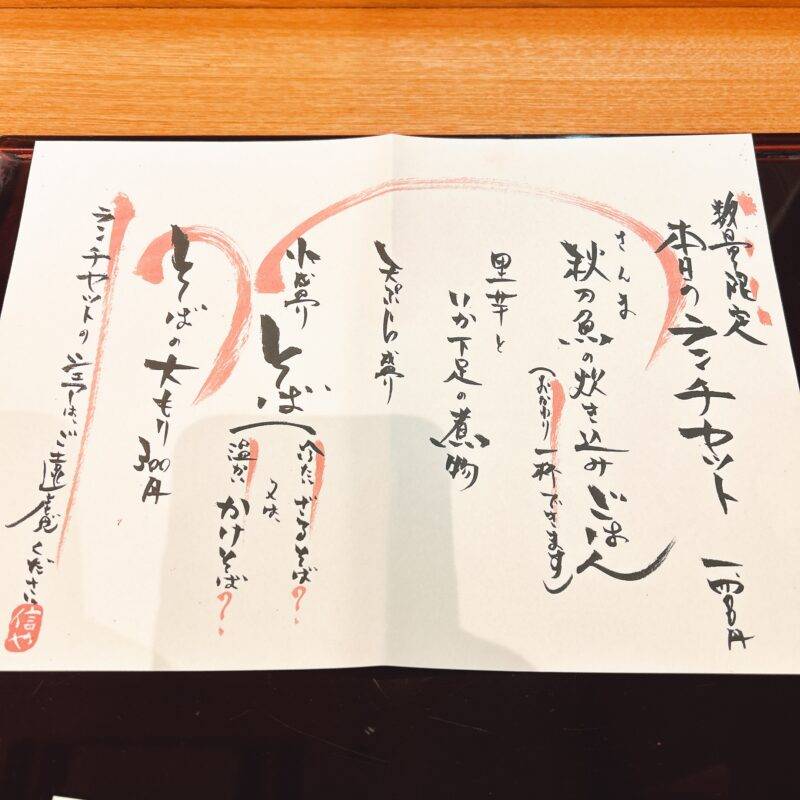 数量限定
本日のランチセット 一、四00円
さんま
秋刀魚の炊き込みごはん
(おかわり一杯できます)
里芋と
いか下足の煮物
天ぷら盛り
小盛り そば(
冷たいざるそば?
又は、
温かいかけそば?
そばの大もり 300円
ランチセットのシェアは、ご遠慮ください
信や